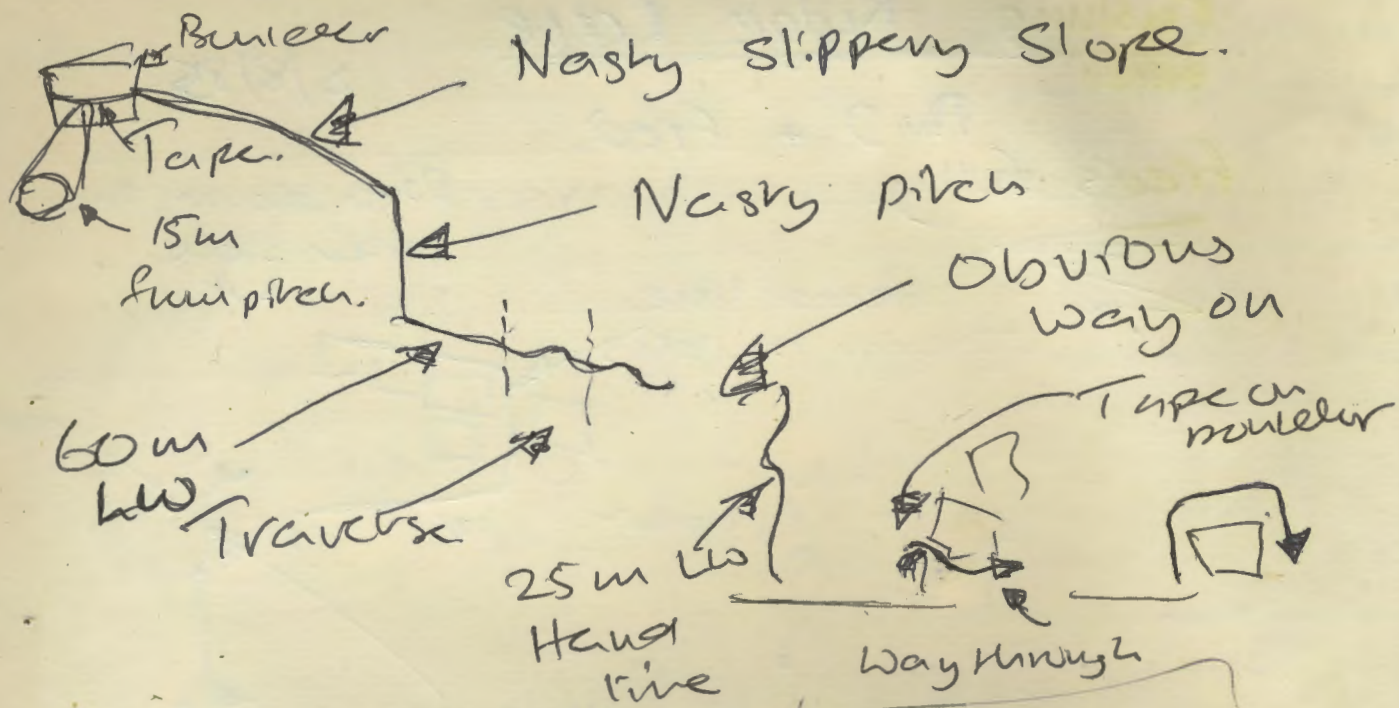 Boulder
Nasty slippery slope.
Tape.
15m
from pitch.
Nasty pitch
Obvious
way on
60m
LW
Traverse
Tape on
boulder
25m LW
Hand
line
Way through